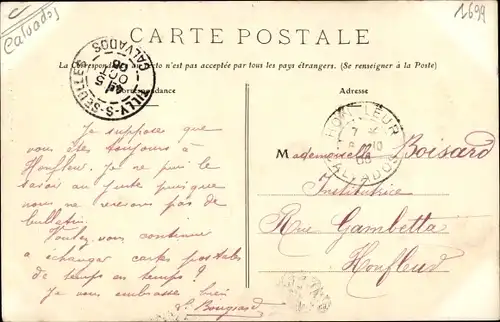 Calvados
1699
CARTE POSTALE
La Correspondance au recto n'est pas acceptée par tous les pays étrangers. (Se renseigner à la Poste)
Correspondance
Adresse
TILLY-S-SEULLES
CALVADOS
HONFLEUR
CALVADOS
Je suppose que
vous êtes toujours à
Honfleur. Je ne puis le
savoir au juste puisque
nous ne recevons pas de
bulletin.
Voulez-vous continuer
à échanger cartes postales
de temps en temps?
Je vous embrasse bien
Mademoiselle Boisard
Institutrice
Rue Gambetta
Honfleur